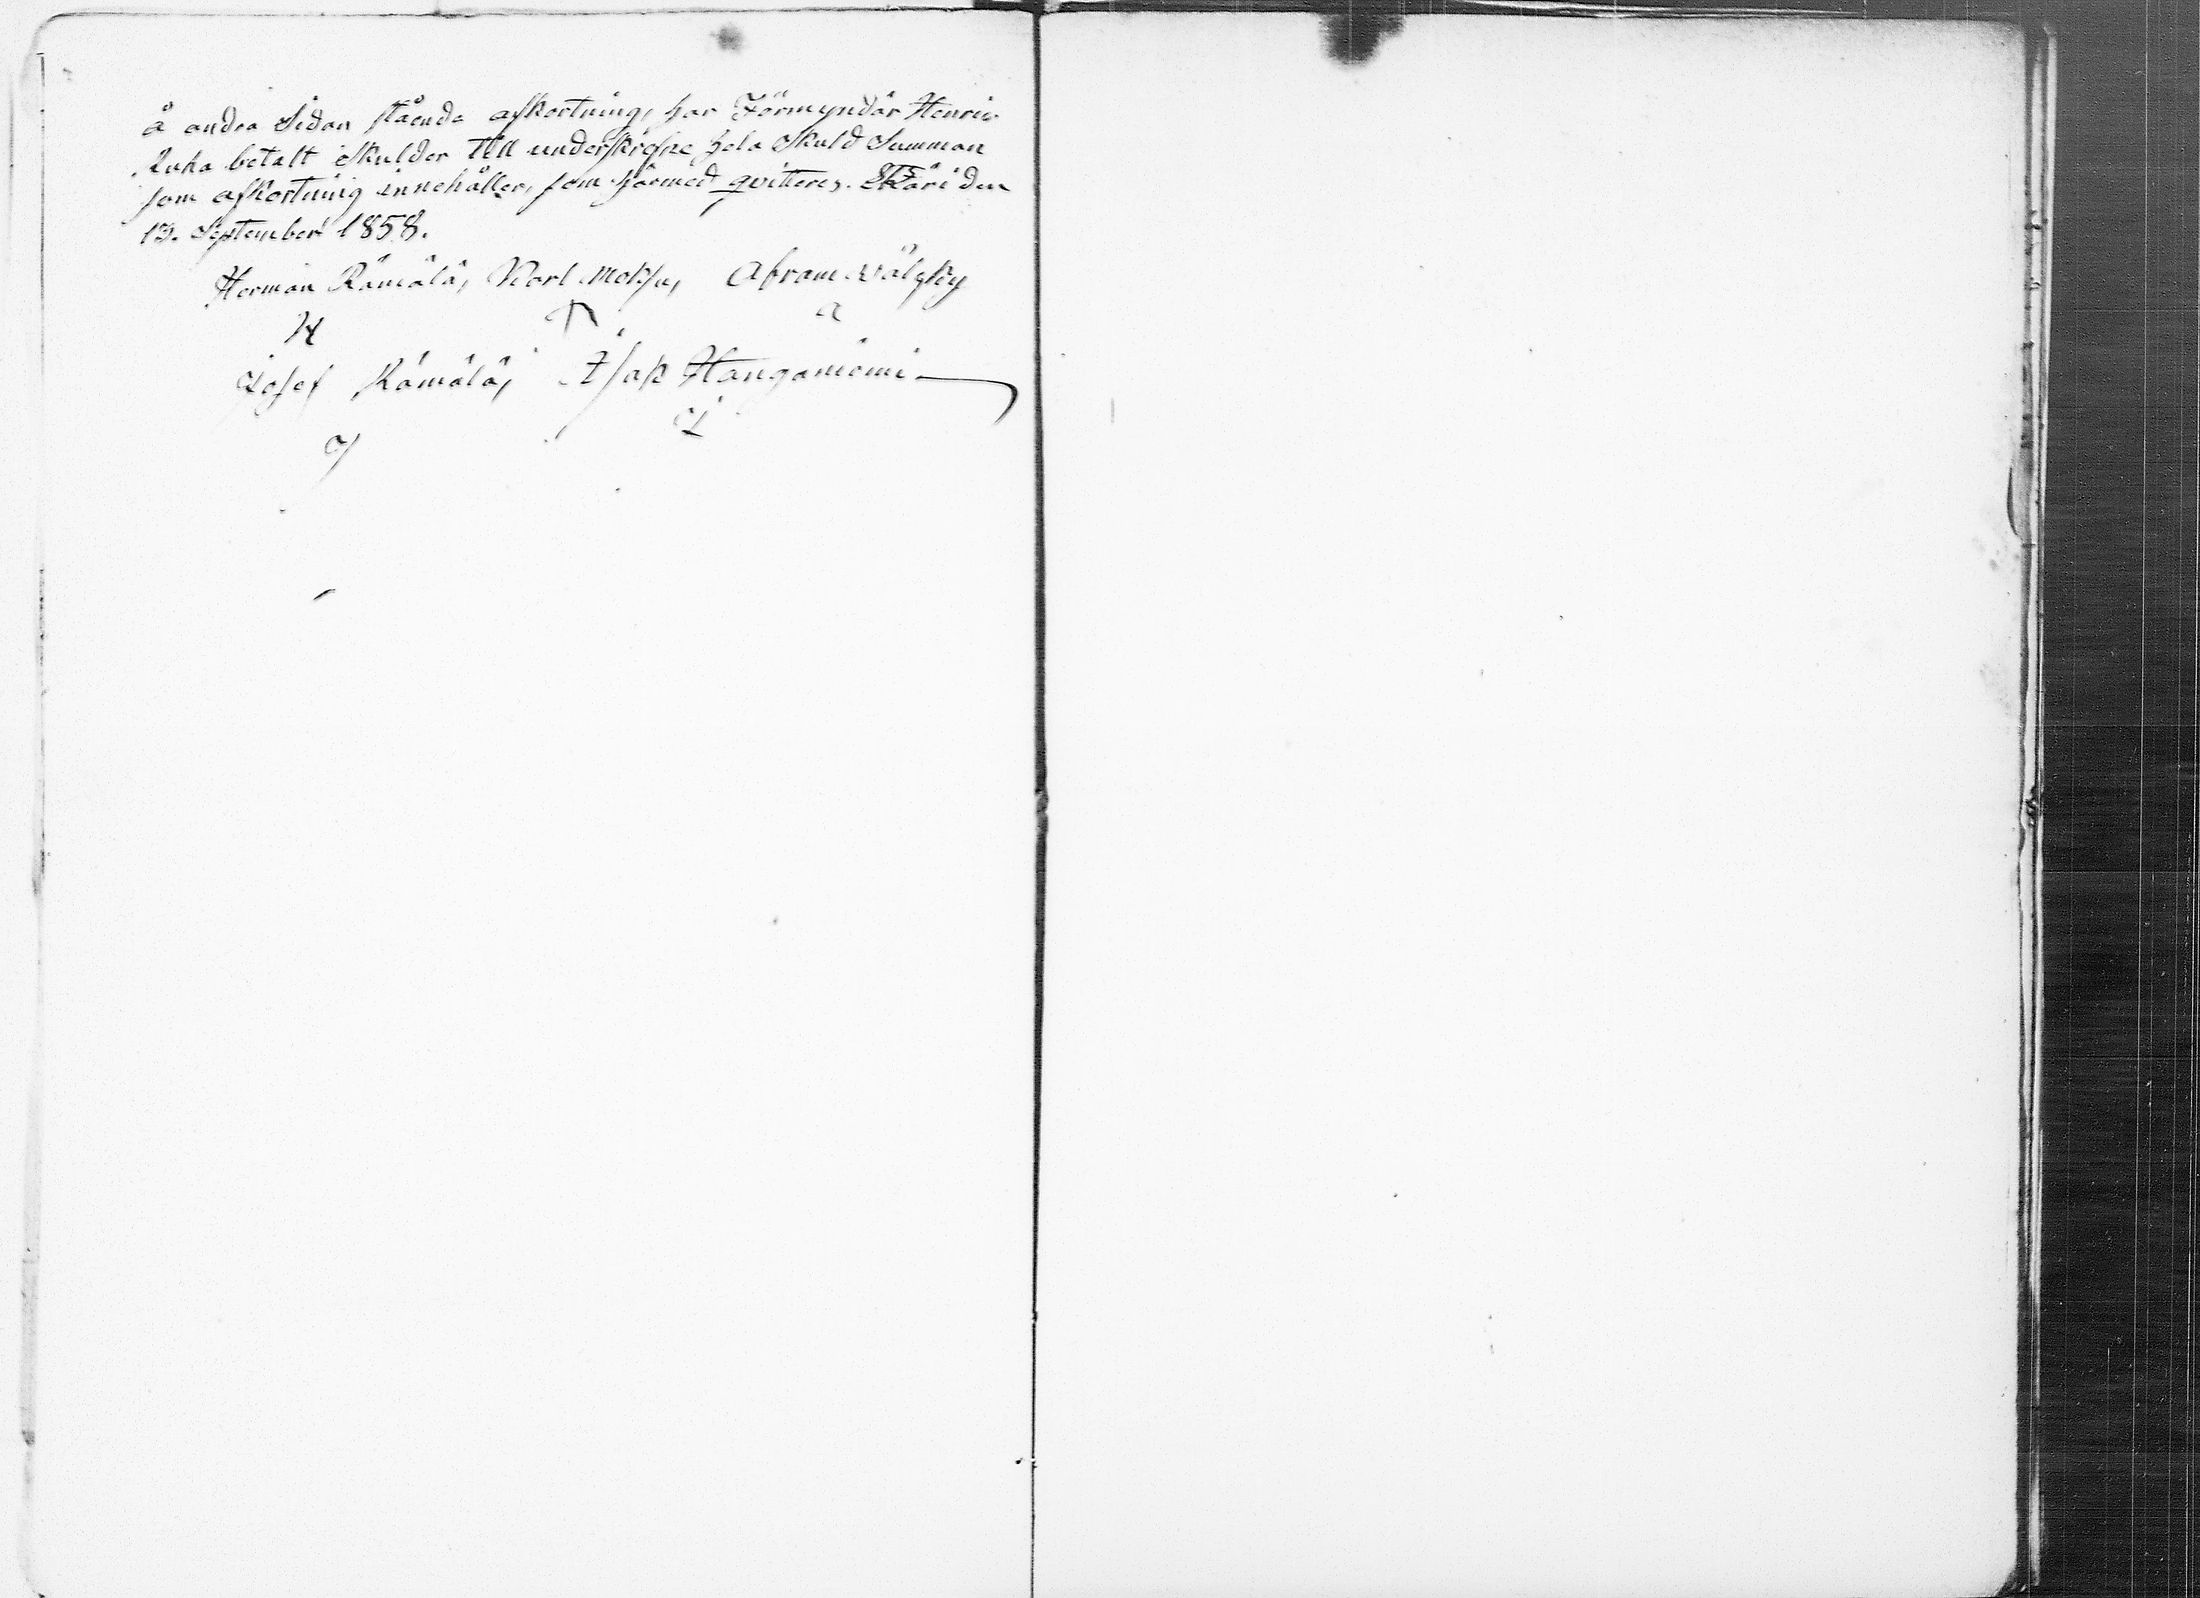 å andra sidan stående afkortning, har Förmyndar Henric
Luka betalt skulder till underskrefne hela Skuld Summan
som afkortning innehåller, som härmed qvitteres. den
13. September 1858.
Herman Rämälä, Karl Moksu, Abram Välsky
H K A
Josef Rämälä, Isak Hanganiemi
J I